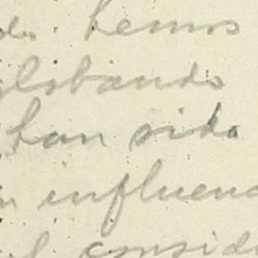 hemos
globando
han sido
influenc
conside